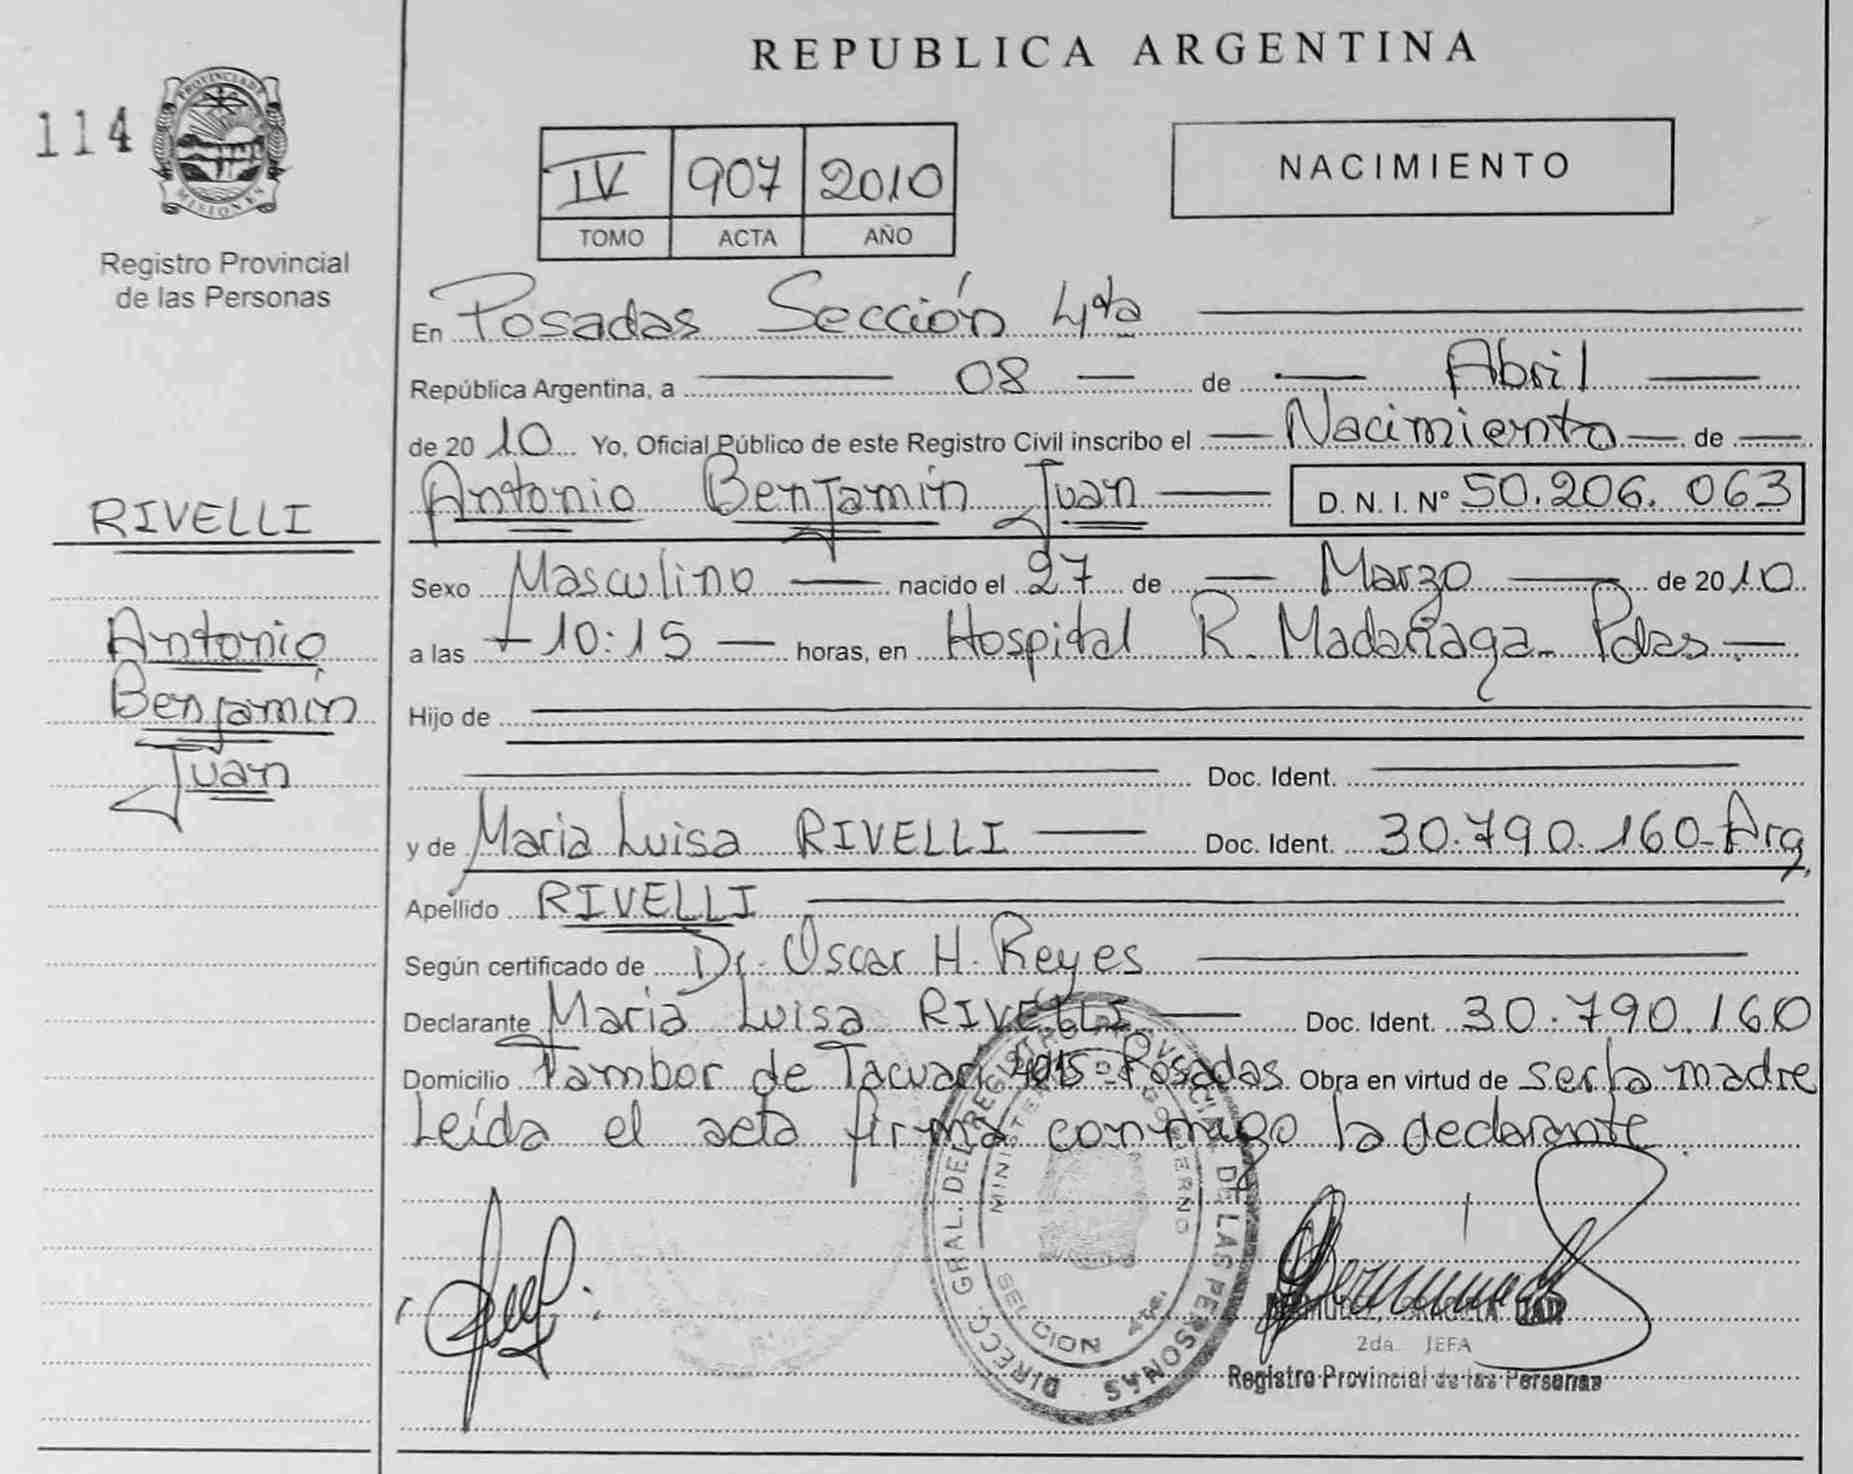 REPUBLICA ARGENTINA
114
PROVINCIA DE
MISIONES
Registro Provincial
de las Personas
IV 907 2010
TOMO ACTA AÑO
NACIMIENTO
En Posadas Sección 4ta
República Argentina, a 08 de Abril
de 2010 Yo, Oficial Público de este Registro Civil inscribo el Nacimiento de
Antonio Benjamín Juan D. N. I. Nº 50.206.063
RIVELLI
Antonio
Benjamín
Juan
Sexo Masculino nacido el 27 de Marzo de 2010
a las 10:15 horas, en Hospital R. Madariaga - Pdas.
Hijo de
Doc. Ident.
y de Maria Luisa RIVELLI Doc. Ident. 30.790.160-Arg.
Apellido RIVELLI
Según certificado de Dr. Oscar H. Reyes
Declarante Maria Luisa RIVELLI Doc. Ident. 30.790.160
Domicilio Tambor de Tacuarí - Posadas Obra en virtud de ser la madre
Leída el acta firma conmigo la declarante.
DIRECC. GRAL. DEL REGISTRO PROVINCIAL DE LAS PERSONAS
GOBIERNO
2da. JEFA
Registro Provincial de las Personas